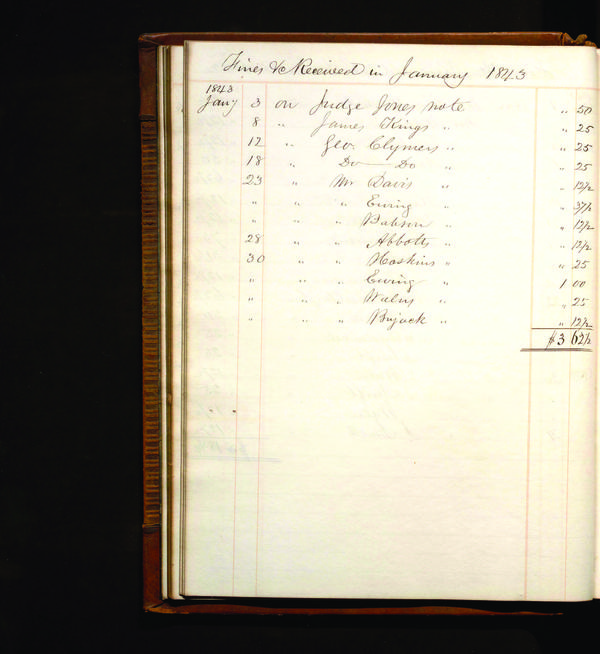 Fines &c Received in January 1843
1843
Jany 3 on Judge Jones note " 50
8 " James Kings " " 25
12 " Geo. Clymers " " 25
18 " Do — Do " " 25
23 " Mr Davis " " 12½
" " " Ewing " " 37½
" " " Babson " " 12½
28 " " Abbotts " " 12½
30 " " Hoskins " " 25
" " " Ewing " 1 00
" " " " " 25
" " " Bujack " " 12½
$3 62½